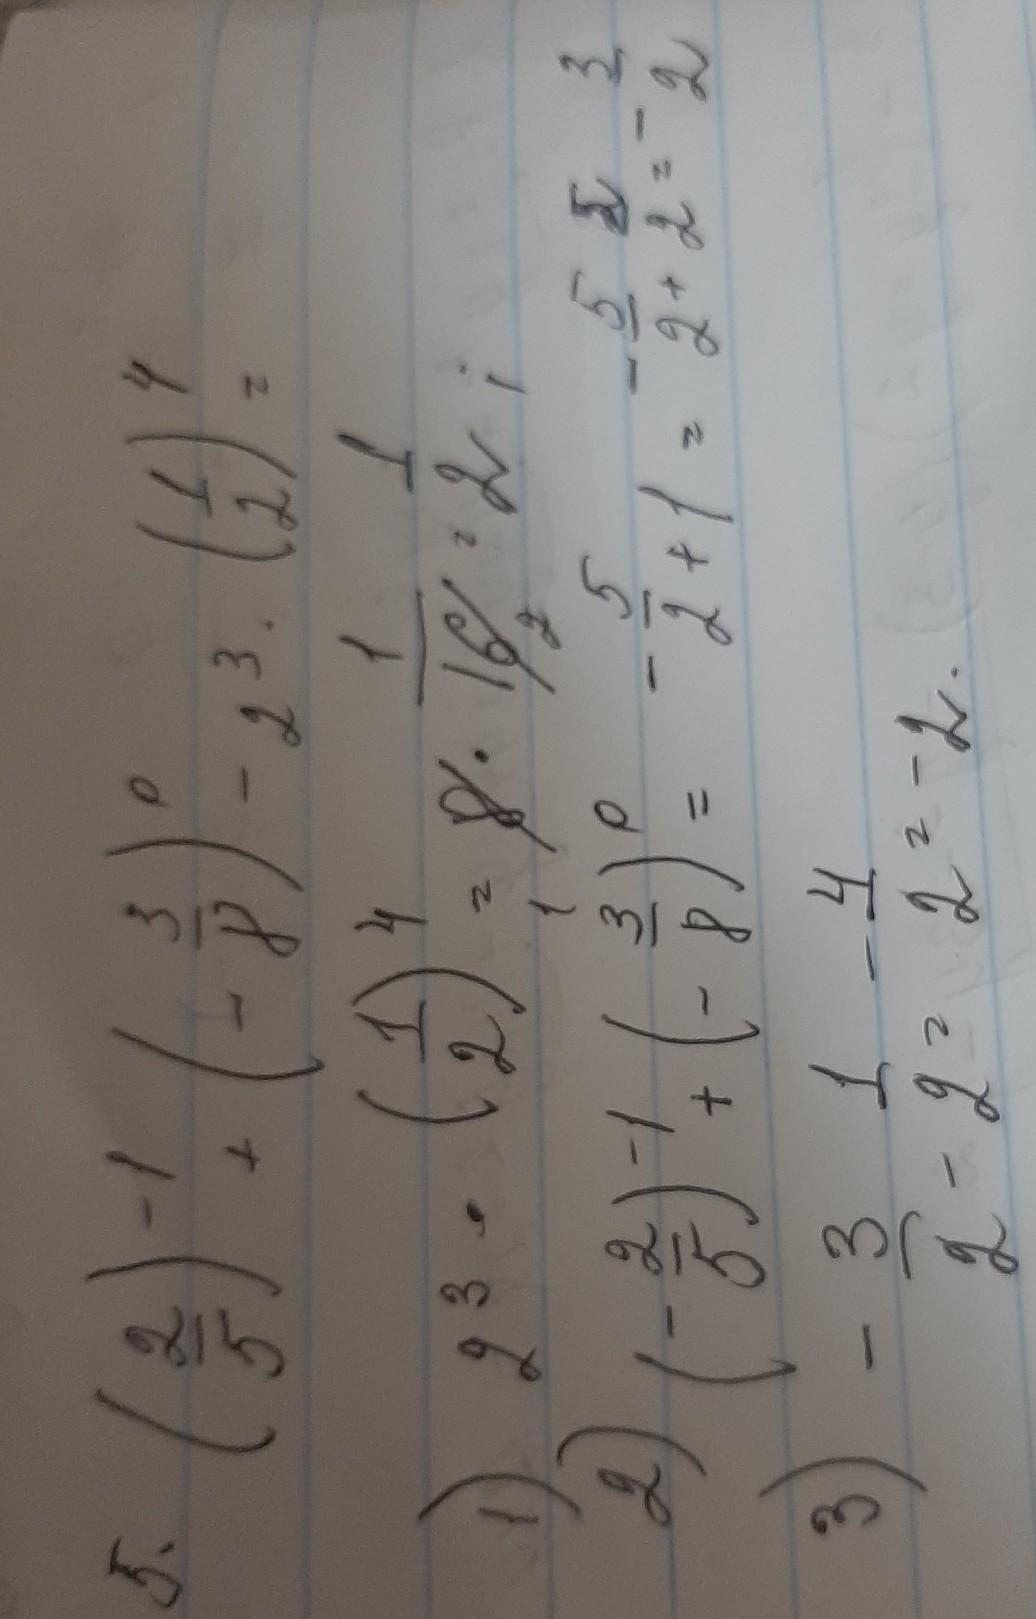 5. (2/5)^-1 + (-3/8)^0 - 2^3 · (1/2)^4 =
1) 2^3 · (1/2)^4 = 8 · 1/16 = 1/2 ;
2) (-2/5)^-1 + (-3/8)^0 = -5/2 + 1 = -5/2 + 2/2 = -3/2
3) -3/2 - 1/2 = -4/2 = -2.